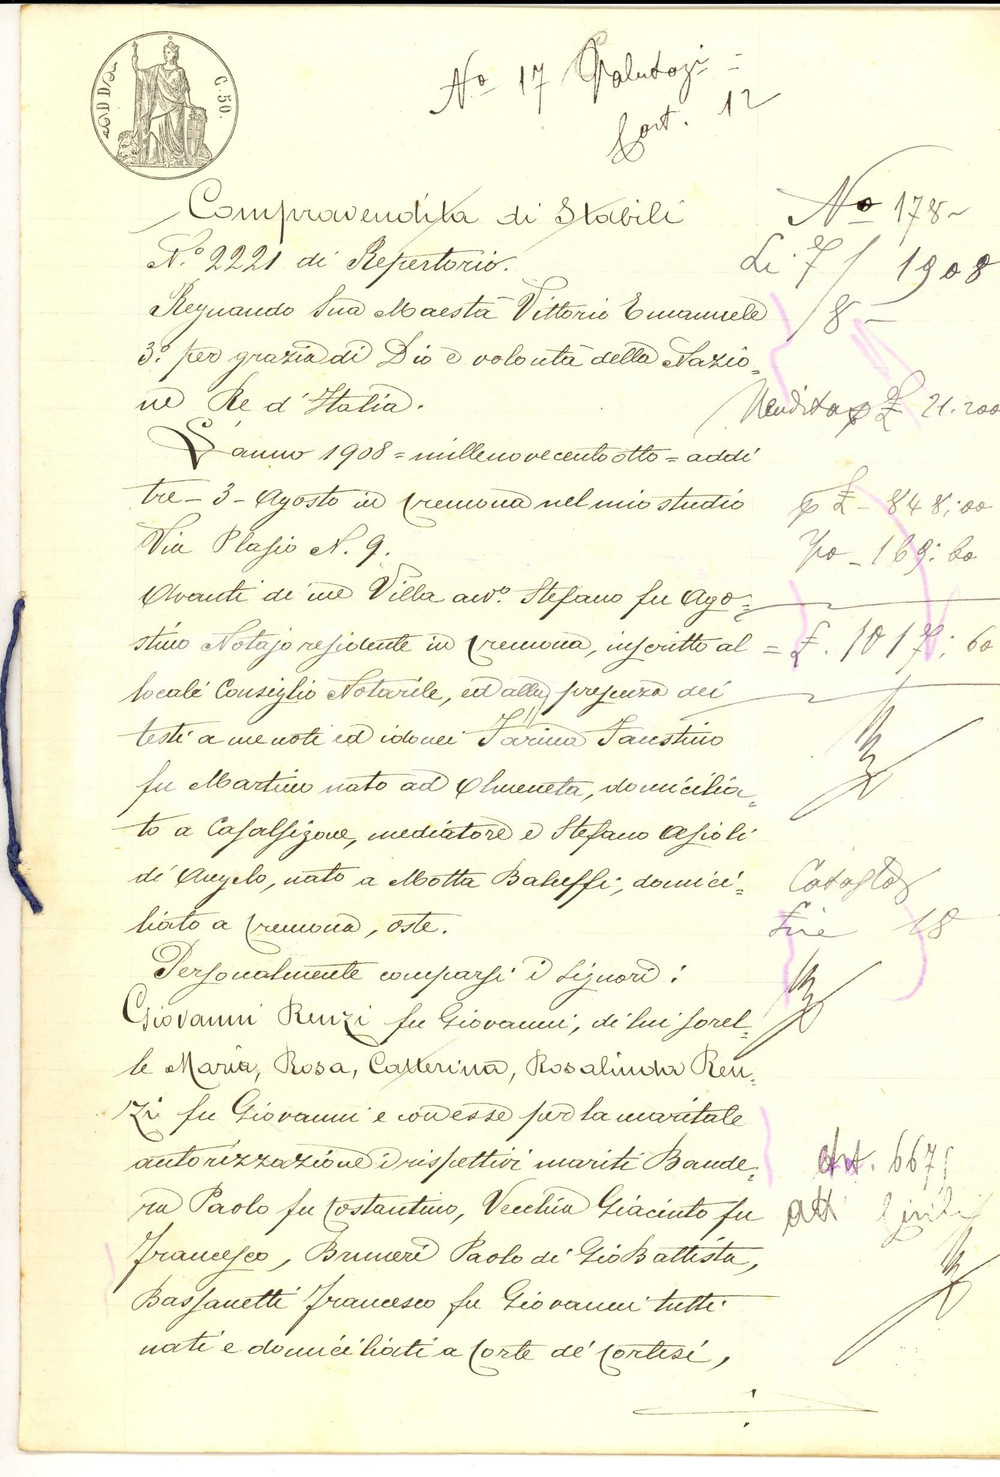 C. 50.
No 17
Cart. 12
Compravendita di Stabili
N.° 2221 di Repertorio.
Regnando Sua Maestà Vittorio Emanuele
3.° per grazia di Dio e volontà della Nazio=
ne Re d'Italia.
L'anno 1908 = millenovecentootto = addì
tre - 3 - Agosto in Cremona nel mio studio
Via Plasio N. 9.
Avanti di me Villa avv.° Stefano fu Ago=
stino Notajo residente in Cremona, inscritto al
locale Consiglio Notarile, ed alla presenza dei
testi a me noti ed idonei Farina Faustino
fu Martino nato ad Olmeneta, domicilia=
to a Casalsigone, mediatore e Stefano Asioli
di Angelo, nato a Motta Baluffi, domici=
liato a Cremona, oste.
Personalmente comparsi i Signori:
Giovanni Renzi fu Giovanni, di lui sorel=
le Maria, Rosa, Catterina, Rosalinda Ren=
zi fu Giovanni e con esse per la maritale
autorizzazione i rispettivi mariti Bande=
ra Paolo fu Costantino, Vecchia Giacinto fu
Francesco, Bruneri Paolo di Gio Battista,
Bassanetti Francesco fu Giovanni tutti
nati e domiciliati a Corte de' Cortesi,
No 178
Li 7/8 1908
Vendita £ 21.200
£ 848,00
169,60
= £. 1017,60
Lire 18
Art. 667
atti